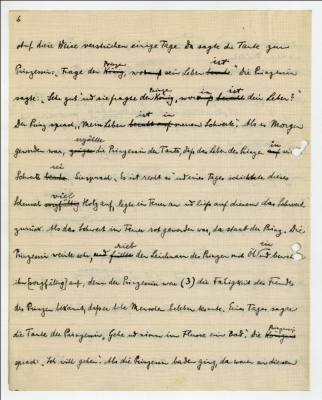 6
Auf diese Weise verstrichen einige Tage. Da sagte die Tante zur
Prinz ist
Prinzessin: „Frage den König, worauf sein Leben beruht." Die Prinzessin
Prinzen in ist
sagte: „Sehr gut" und sie fragte den König, worauf beruht dein Leben?"
ist in
Der Prinz sprach, „Mein Leben beruht auf meinem Schwert." Als es Morgen
erzählte in
geworden war, die Prinzessin der Tante, dass das Leben des Prinzen auf
sei
Schwerte beruhe. Sie sprach „Es ist recht" und eines Tages schichtete dieses
viel
Scheusal sorgfältig Holz auf, legte ein Feuer an und lief auf diesem das Schwert
zurück. Als das Schwert im Feuer rot geworden war, da starb der Prinz. Die
rieb ein
Prinzessin weinte sehr, und den Leichnam des Prinzen mit Öl und
ihn [sorgfältig] auf, denn der Prinzessin war (3) die Fähigkeit des Freundes
des Prinzen bekannt, dass er tote Menschen beleben könnte. Eines Tages sagte
die Tante der Prinzessin, „Gehe und nimm im Flusse ein Bad." Die
Prinzessin
sprach „Ich will gehen". Als die Prinzessin baden ging, da waren an diesem